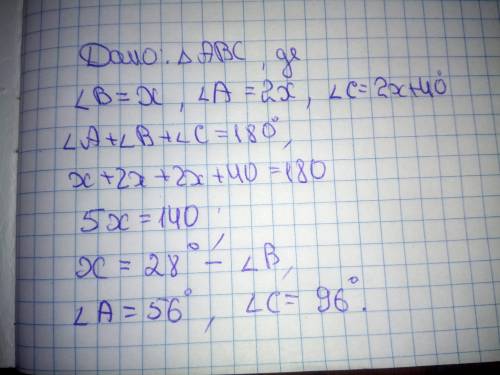 Дано: △ABC, де
∠B=x, ∠A=2x, ∠C=2x+40°
∠A+∠B+∠C=180°,
x+2x+2x+40=180
5x=140,
x=28° – ∠B,
∠A=56°, ∠C=96°.